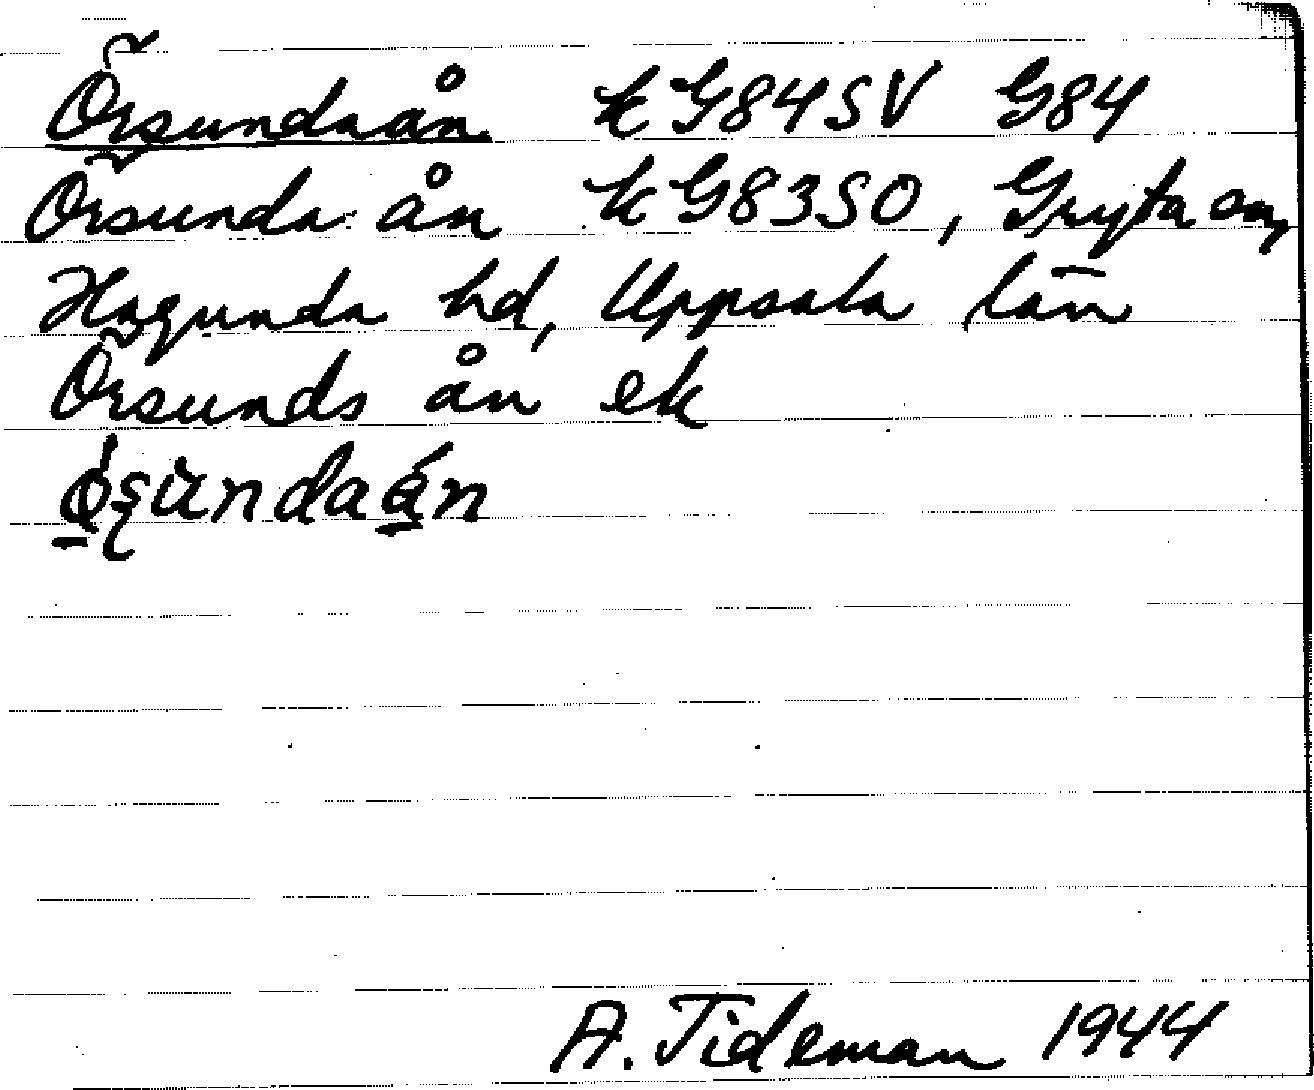 Örsundaån k G84SV G84
Örsunda ån k G83SO, Gryta sn,
Hagunda hd, Uppsala län
Örsunds ån ek
A. Tideman 1944